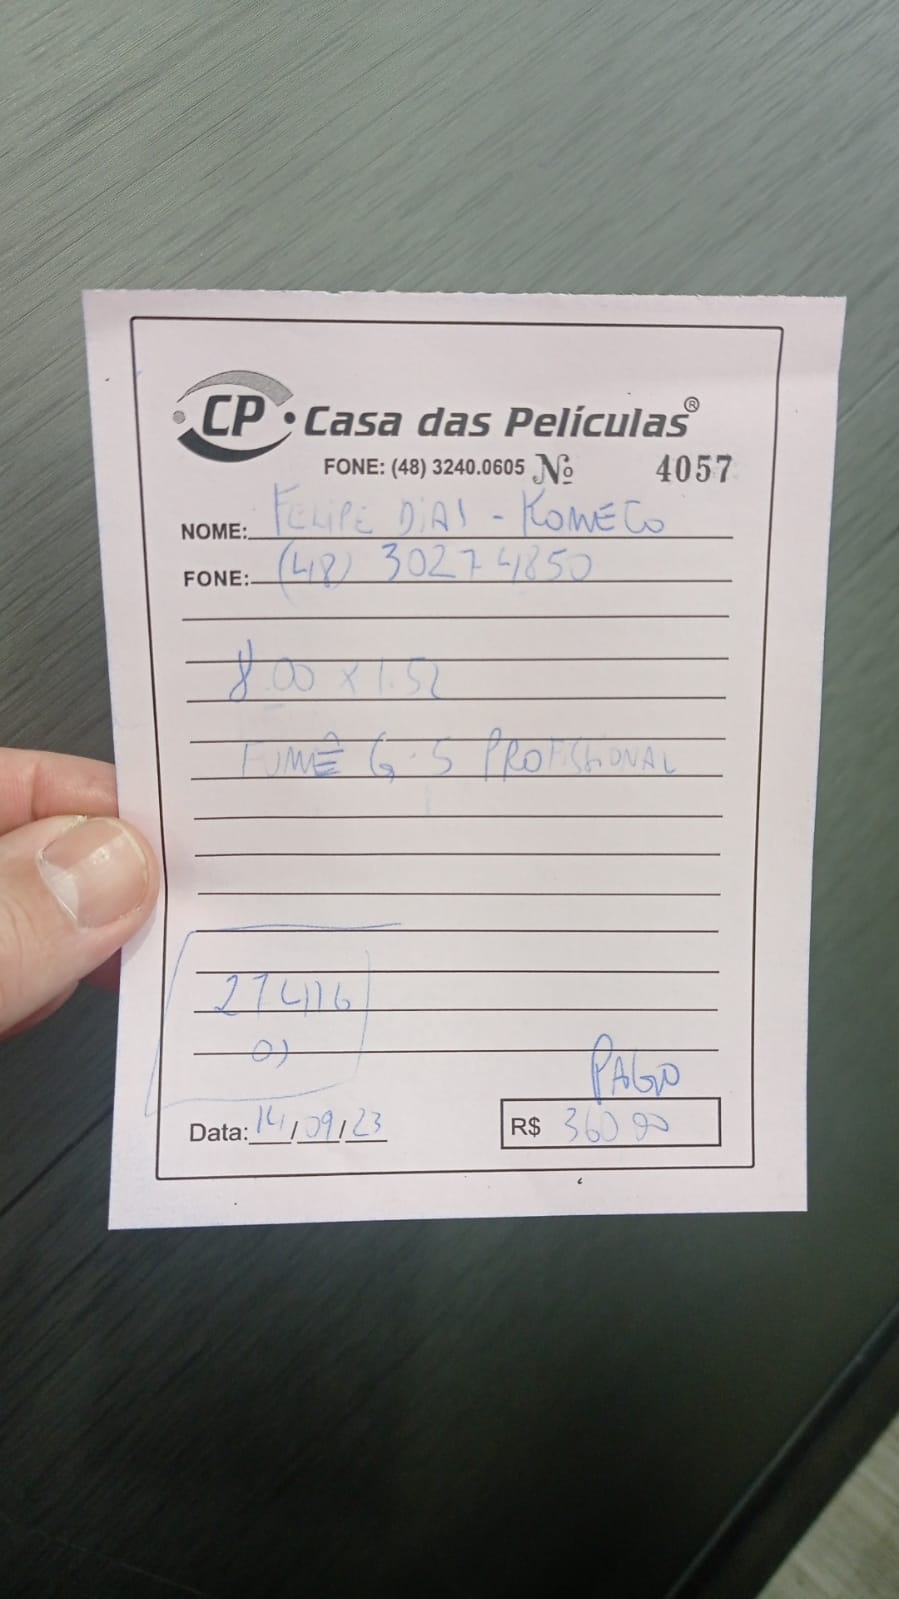 CP Casa das Películas®
FONE: (48) 3240.0605 Nº 4057
NOME: FELIPE DIAS - KOMECO
FONE: (48) 30274850
8.00 x 1.52
FUMÊ G-5 PROFISSIONAL
274116
PAGO
Data: 14/09/23 R$ 360 00